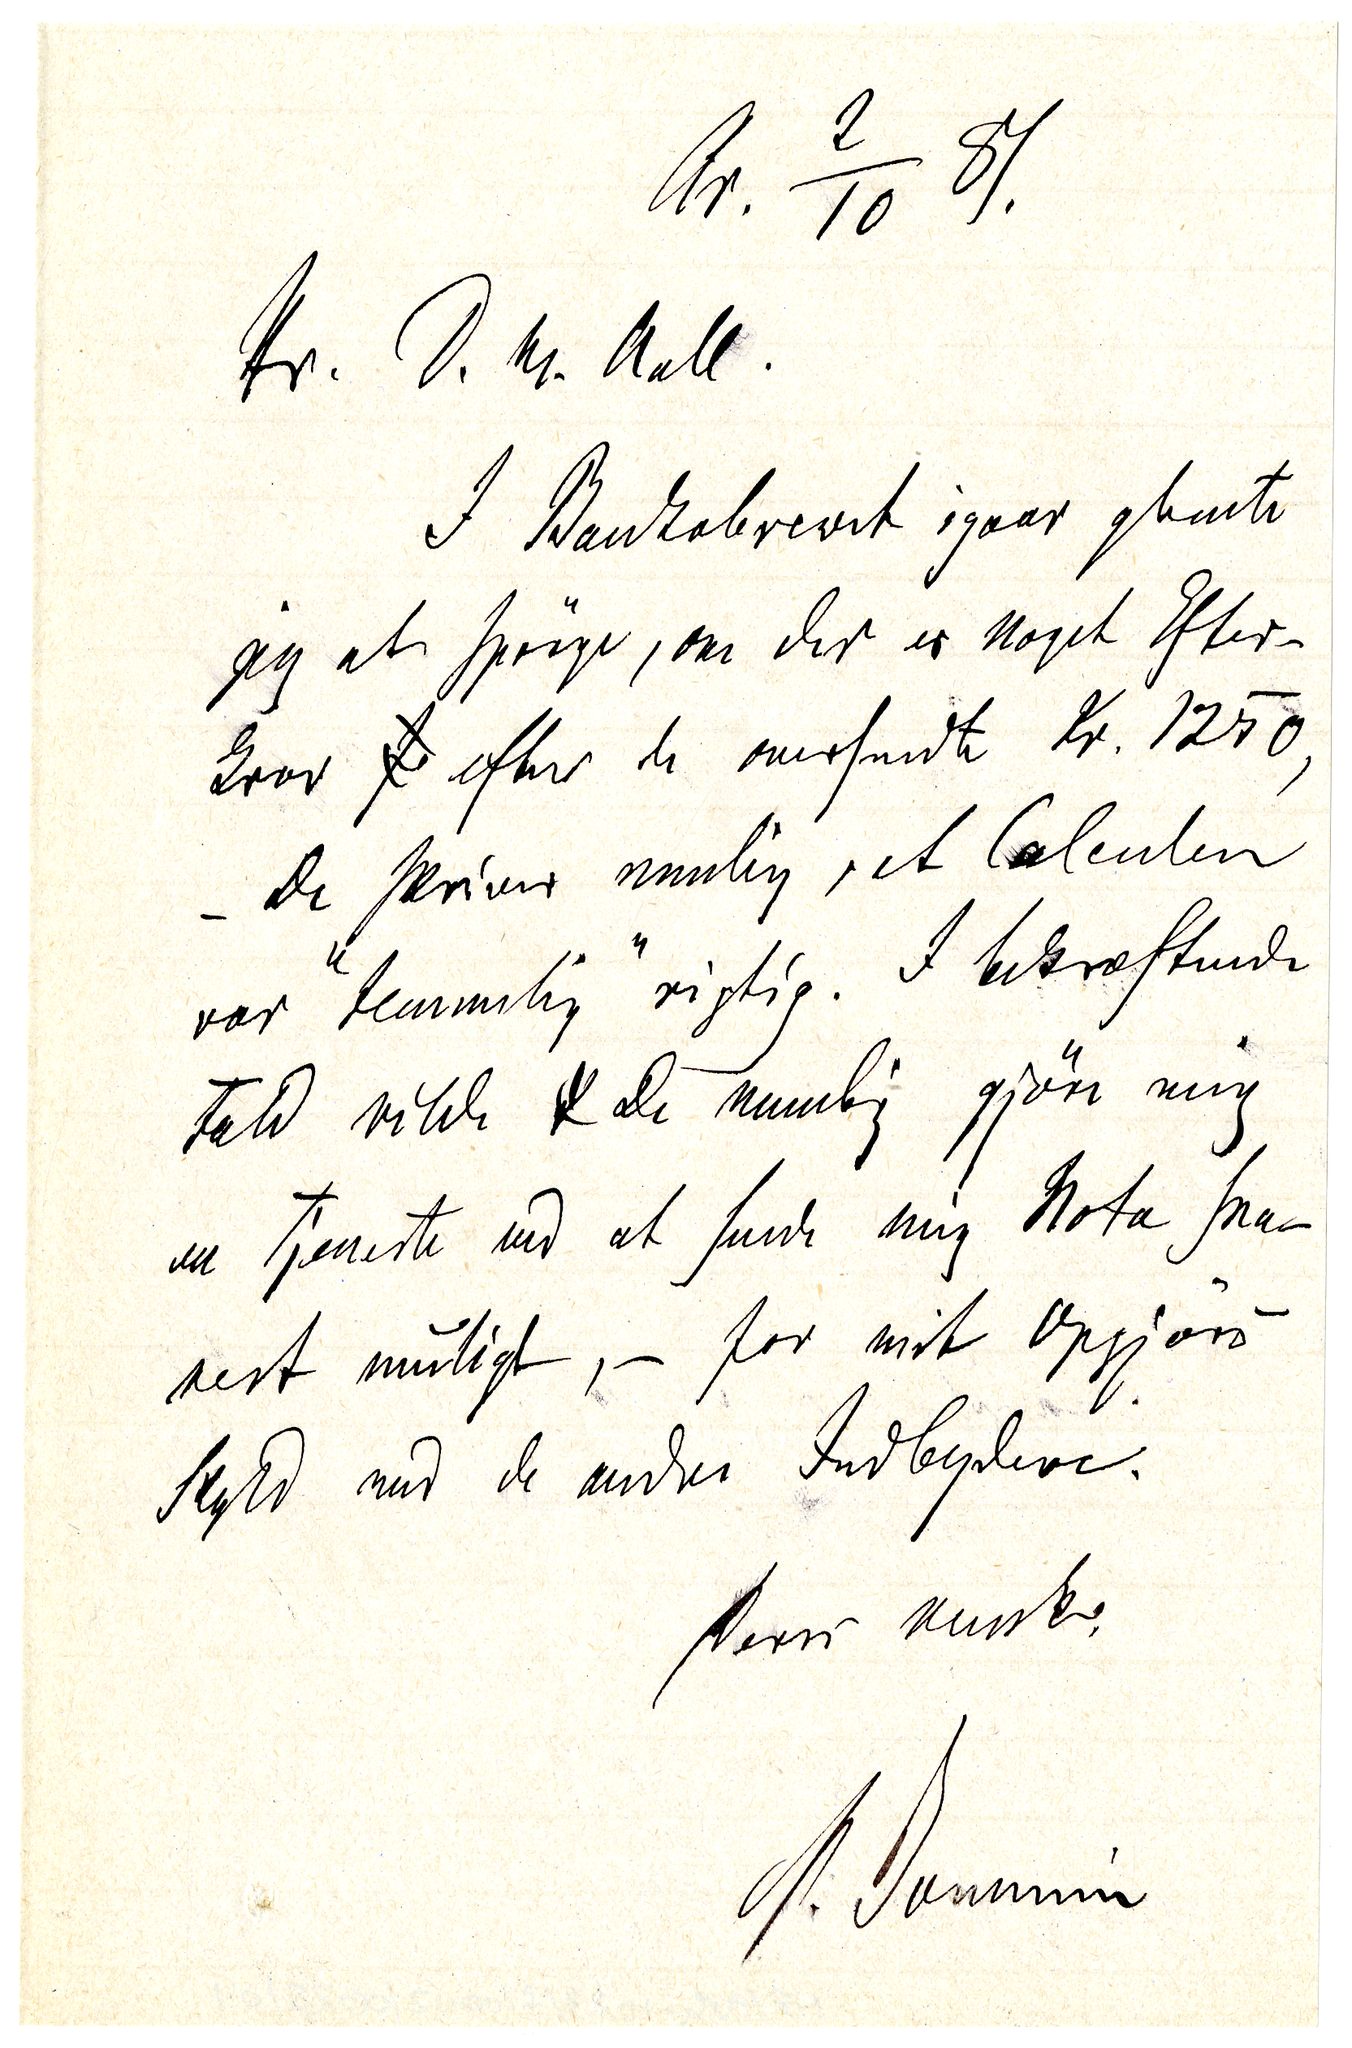 Kr. 2/10 81.
Hr. D. M. Aall.
I Bankobrevet igaar glemte
jeg at spörge, om der er noget Efter-
krav efter de oversendte Kr. 1250,
- De skriver nemlig, at Calculen
var "temmelig" rigtig. I bekræftende
Fald vilde De nemlig gjöre mig
en Tjeneste ved at sende mig Nota sna-
rest muligt, - for mit Opgjörs
Skyld med de andre Indbydere.
Deres